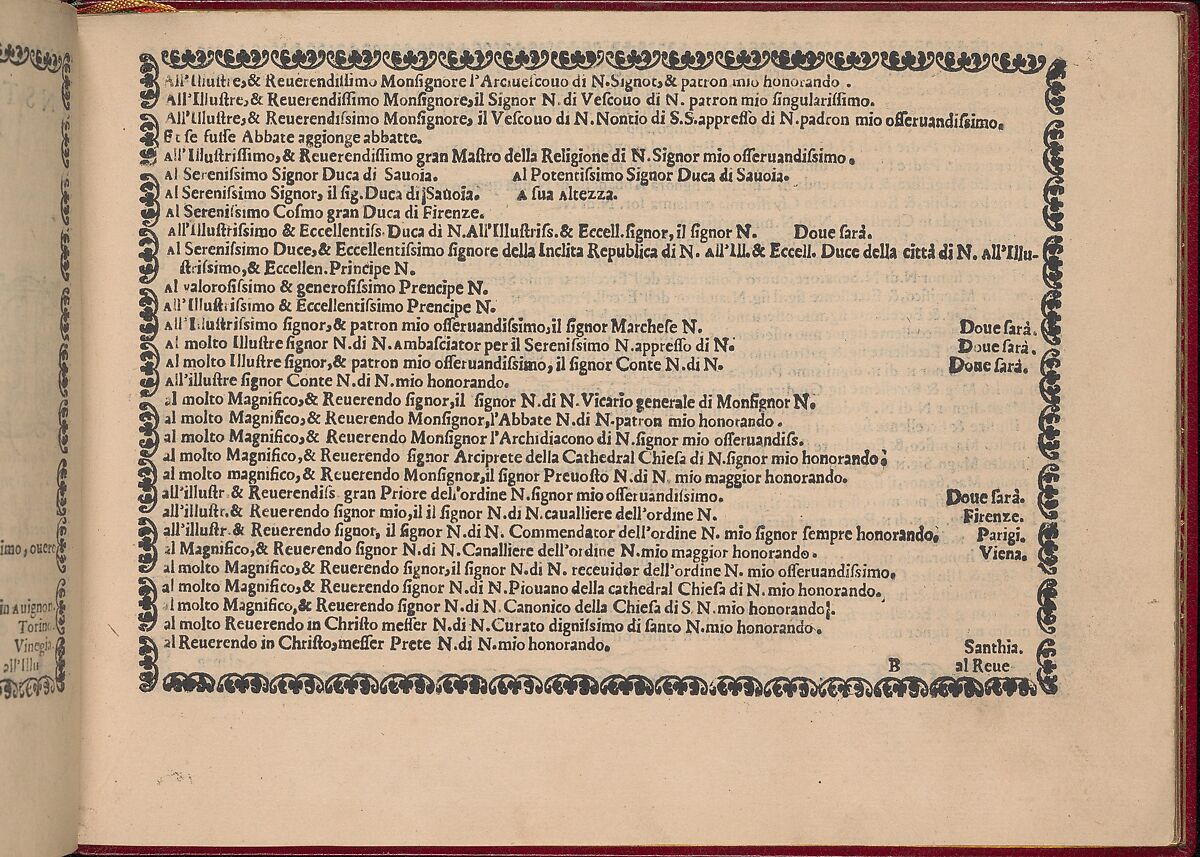 imo, ouero
in Auignon.
Torino.
Vinegia.
all'Illu
All'Illustre,& Reuerendissimo Monsignore l'Arciuescouo di N.Signor,& patron mio honorando.
All'Illustre,& Reuerendissimo Monsignore,il Signor N. di Vescouo di N. patron mio singularissimo.
All'Illustre,& Reuerendissimo Monsignore, il Vescouo di N.Nontio di S.S.appresso di N.padron mio osseruandissimo.
Et se fusse Abbate aggionge abbatte.
All'Illustrissimo,& Reuerendissimo gran Mastro della Religione di N.Signor mio osseruandissimo.
Al Serenissimo Signor Duca di Sauoia. Al Potentissimo Signor Duca di Sauoia.
Al Serenissimo Signor, il sig.Duca di Sauoia. A sua Altezza.
Al Serenissimo Cosmo gran Duca di Firenze.
All'Illustrissimo & Eccellentiss. Duca di N.All'Illustriss.& Eccell.signor, il signor N. Doue sarà.
Al Serenissimo Duce,& Eccellentissimo signore della Inclita Republica di N. All'Ill.& Eccell. Duce della città di N. All'Illu-
strissimo,& Eccellen.Principe N.
Al valorosissimo & generosissimo Prencipe N.
All'Illustrissimo & Eccellentissimo Prencipe N.
All'Illustrissimo signor,& patron mio osseruandissimo,il signor Marchese N. Doue sarà.
Al molto Illustre signor N.di N.Ambasciator per il Serenissimo N.appresso di N. Doue sarà.
Al molto Illustre signor,& patron mio osseruandissimo, il signor Conte N.di N. Doue sarà.
All'illustre signor Conte N.di N.mio honorando.
al molto Magnifico,& Reuerendo signor,il signor N.di N.Vicario generale di Monsignor N.
al molto Magnifico,& Reuerendo Monsignor,l'Abbate N.di N.patron mio honorando.
al molto Magnifico,& Reuerendo Monsignor l'Archidiacono di N.signor mio osseruandiss.
al molto Magnifico,& Reuerendo signor Arciprete della Cathedral Chiesa di N.signor mio honorando.
al molto magnifico,& Reuerendo Monsignor,il signor Preuosto N.di N. mio maggior honorando.
all'illustr.& Reuerendiss gran Priore del'ordine N.signor mio osseruandissimo. Doue sarà.
all'illustr.& Reuerendo signor mio,il il signor N.di N.caualliere dell'ordine N. Firenze.
all'illustr.& Reuerendo signor, il signor N.di N. Commendator dell'ordine N. mio signor sempre honorando. Parigi.
al Magnifico,& Reuerendo signor N.di N.Canalliere dell'ordine N.mio maggior honorando. Viena.
al molto Magnifico,& Reuerendo signor,il signor N.di N. receuidor dell'ordine N. mio osseruandissimo.
al molto Magnifico,& Reuerendo signor N.di N.Piouano della cathedral Chiesa di N.mio honorando.
al molto Magnifico,& Reuerendo signor N.di N.Canonico della Chiesa di S N.mio honorando.
al molto Reuerendo in Christo messer N.di N.Curato dignissimo di santo N.mio honorando.
al Reuerendo in Christo,messer Prete N.di N.mio honorando. Santhia.
B al Reue